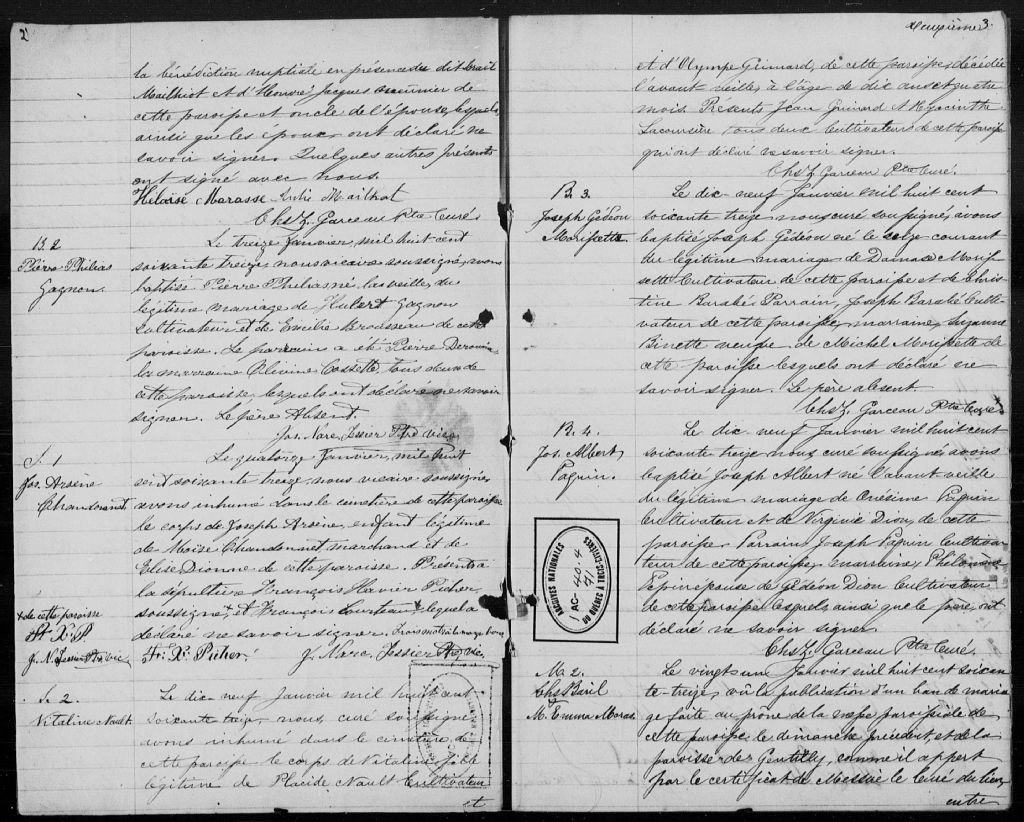 2
la bénédiction nuptiale en présence du dit
Mailhiot et d'Honoré Jacques meunier de
cette paroisse et oncle de l'épouse, lesquels
ainsi que les epoux ont déclaré ne
savoir signer. Quelques autres présents
ont signé avec nous.
Heloise Marasse Julie Mailhot
Chs Z. Garceau Ptre Curé
B. 2
Pierre Philéas
Gagnon.
Le treize Janvier, mil huit cent
soixante treize, nous vicaire soussigné, avons
baptisé Pierre Philéas né la veille, du
légitime mariage de Hubert Gagnon
Cultivateur et de Emélie Brousseau de cette
paroisse. Le parrain a été Pierre
la marraine Olivine Cossette, tous deux de
cette paroisse, lesquels ont déclaré ne savoir
signer. Le père Absent.
Jos. Narc. Tessier Ptre vic.
S. 1
Jos. Arsène
Chandonnet
Le quatorze Janvier, mil huit
cent soixante treize, nous vicaire soussigné,
avons inhumé dans le cimetière de cette paroisse
le corps de Joseph Arsène, enfant légitime
de Moïse Chandonnet marchand et de
Elise Dionne de cette paroisse. Présents à
la sépulture François Xavier Piché
soussigné & François Courteau lequel a
déclaré ne savoir signer. Trois mots en marge bons
Fr: Xr. Piché. J. Narc. Tessier Ptre vic.
+ de cette paroisse
J. N. Tessier Ptre vic.
S. 2
Vitaline Nault.
Le dix neuf Janvier mil huit cent
soixante treize, nous, curé soussigné
avons inhumé dans le cimetière de
cette paroisse le corps de Vitaline, fille
légitime de Placide Nault Cultivateur
et
Deuxième 3.
et d'Olympe Grimard, de cette paroisse, décédée
l'avant veille, à l'âge de dix ans et quatre
mois. Présents Jean Grimard & Hyacinthe
Lacoursière tous deux Cultivateurs de cette paroisse
qui ont déclaré ne savoir signer.
Chs Z. Garceau Ptre Curé.
B. 3.
Joseph Gédéon
Morissette.
Le dix neuf Janvier mil huit cent
soixante treize, nous curé soussigné, avons
baptisé Joseph Gédéon né le seize courant
du légitime mariage de Damase Moris
sette Cultivateur de cette paroisse et de Chris-
tine Barabé. Parrain, Joseph Barabé Culti-
vateur de cette paroisse, marraine, Suzanne
Binette veuve de Michel Morissette de
cette paroisse lesquels ont déclaré ne
savoir signer. Le père absent.
Chs Z. Garceau Ptre Curé
B. 4.
Jos. Albert
Paquin.
Le dix neuf Janvier mil huit cent
soixante treize nous curé soussigné, avons
baptisé Joseph Albert né l'avant veille
du légitime mariage de Onésime Paquin
Cultivateur et de Virginie Dion, de cette
paroisse. Parrain Joseph Paquin Cultiva-
teur de cette paroisse, marraine, Philomène
Pépin épouse de Gédéon Dion Cultivateur
de cette paroisse lesquels, ainsi que le père, ont
déclaré ne savoir signer.
Chs Z. Garceau Ptre Curé.
ARCHIVES NATIONALES
AC-40-4
DU QUÉBEC À TROIS-RIVIÈRES
M. 2.
Chs Baril
M. Emma Moras.
Le vingt un Janvier mil huit cent soixan-
te-treize, vû la publication d'un ban de maria-
ge faite au prône de la messe paroissiale de
cette paroisse le dimanche précédent, et de la
paroisse de Gentilly, comme il appert
par le certificat de Messire le Curé du lieu,
entre